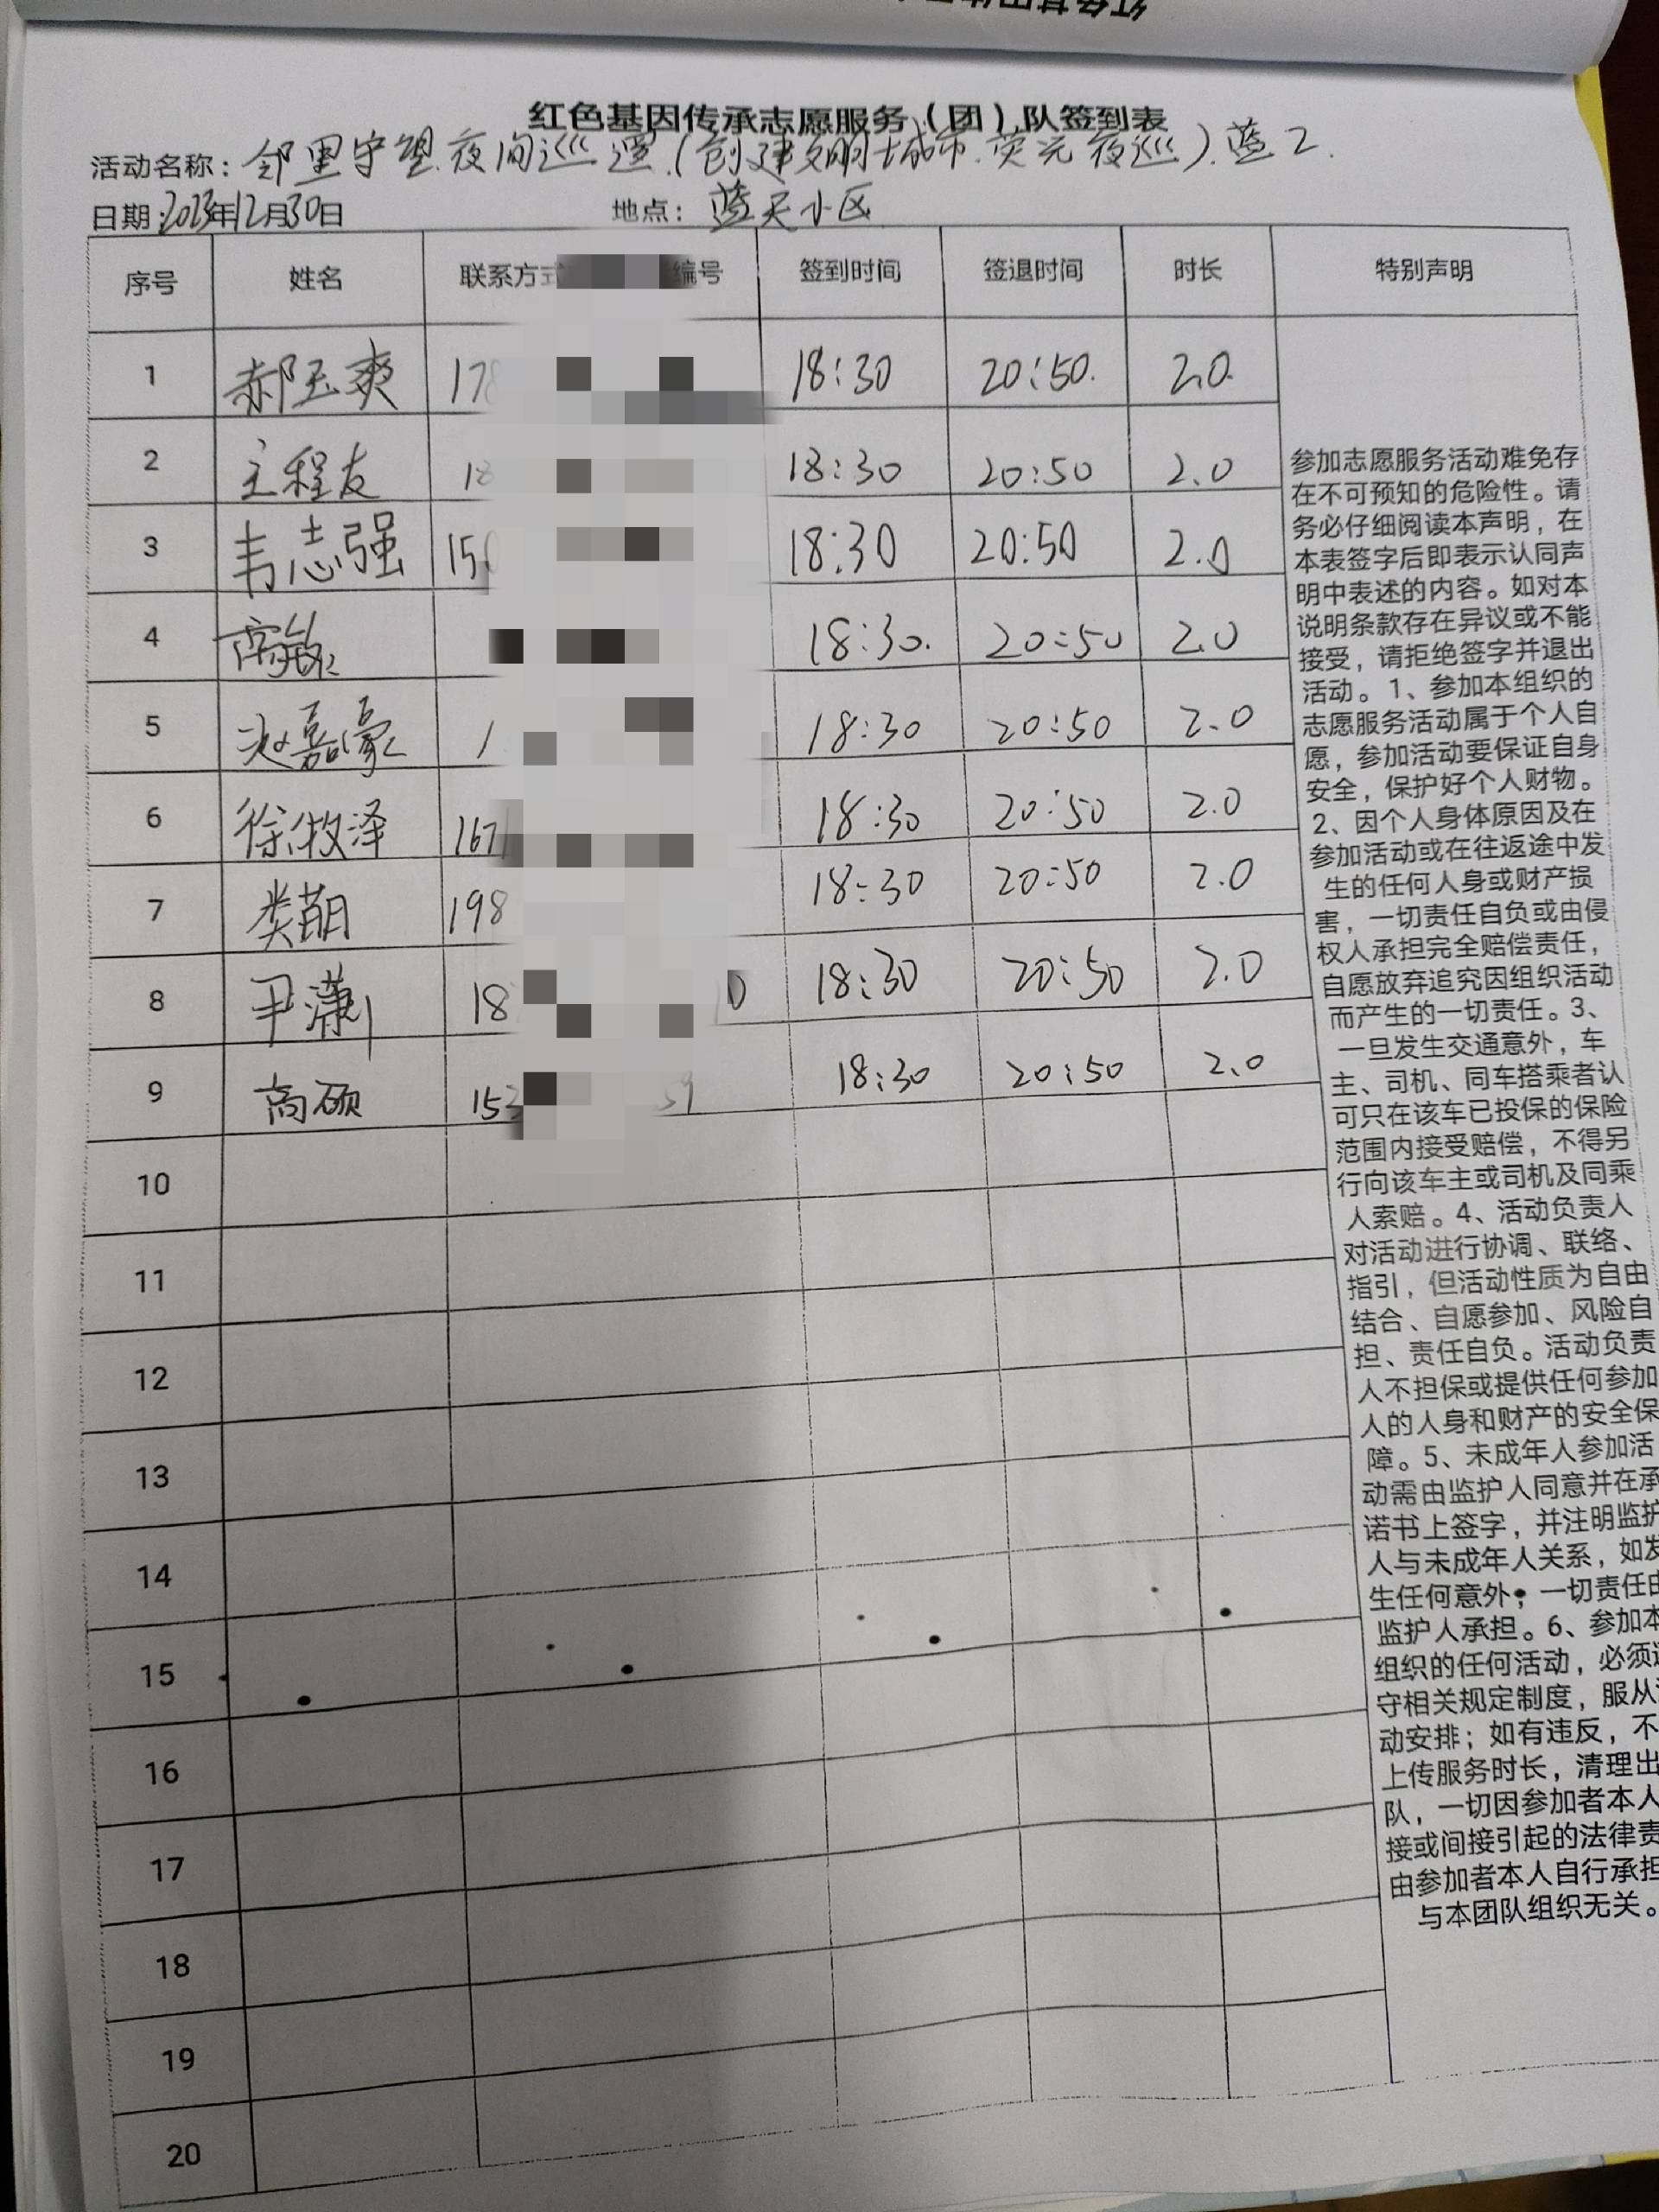 红色基因传承志愿服务（团）队签到表
活动名称：邻里守望.夜间巡逻.(创建文明城市.荧光夜巡).蓝2.
日期：2023年12月30日 地点：蓝天小区
序号 姓名 联系方式 编号 签到时间 签退时间 时长 特别声明
1 郝玉爽 178 18:30 20:50. 2.0.
2 王程友 18 18:30 20:50 2.0
3 韦志强 150 18:30 20:50 2.0
4 高敏 18:30. 20:50 2.0
5 赵嘉豪 1 18:30 20:50 2.0
6 徐牧泽 167 18:30 20:50 2.0
7 娄萌 198 18:30 20:50 2.0
8 尹潇 18 0 18:30 20:50 2.0
9 高硕 153 59 18:30 20:50 2.0
10
11
12
13
14
15
16
17
18
19
20
参加志愿服务活动难免存
在不可预知的危险性。请
务必仔细阅读本声明，在
本表签字后即表示认同声
明中表述的内容。如对本
说明条款存在异议或不能
接受，请拒绝签字并退出
活动。1、参加本组织的
志愿服务活动属于个人自
愿，参加活动要保证自身
安全，保护好个人财物。
2、因个人身体原因及在
参加活动或在往返途中发
生的任何人身或财产损
害，一切责任自负或由侵
权人承担完全赔偿责任，
自愿放弃追究因组织活动
而产生的一切责任。3、
一旦发生交通意外，车
主、司机、同车搭乘者认
可只在该车已投保的保险
范围内接受赔偿，不得另
行向该车主或司机及同乘
人索赔。4、活动负责人
对活动进行协调、联络、
指引，但活动性质为自由
结合、自愿参加、风险自
担、责任自负。活动负责
人不担保或提供任何参加
人的人身和财产的安全保
障。5、未成年人参加活
动需由监护人同意并在承
诺书上签字，并注明监护
人与未成年人关系，如发
生任何意外，一切责任由
监护人承担。6、参加本
组织的任何活动，必须遵
守相关规定制度，服从活
动安排；如有违反，不
上传服务时长，清理出
队，一切因参加者本人
接或间接引起的法律责
由参加者本人自行承担
与本团队组织无关。